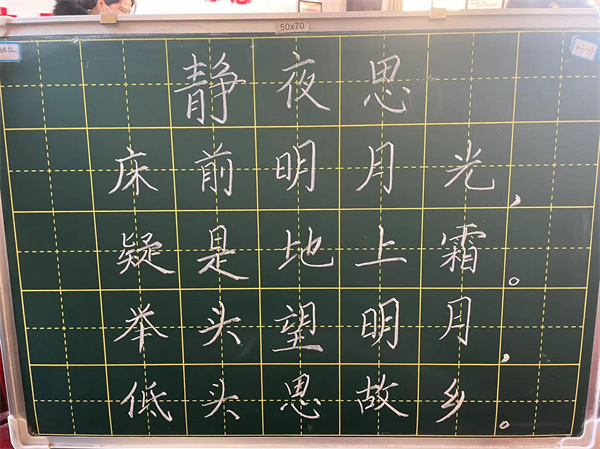 50x70
静夜思
床前明月光，
疑是地上霜。
举头望明月，
低头思故乡。